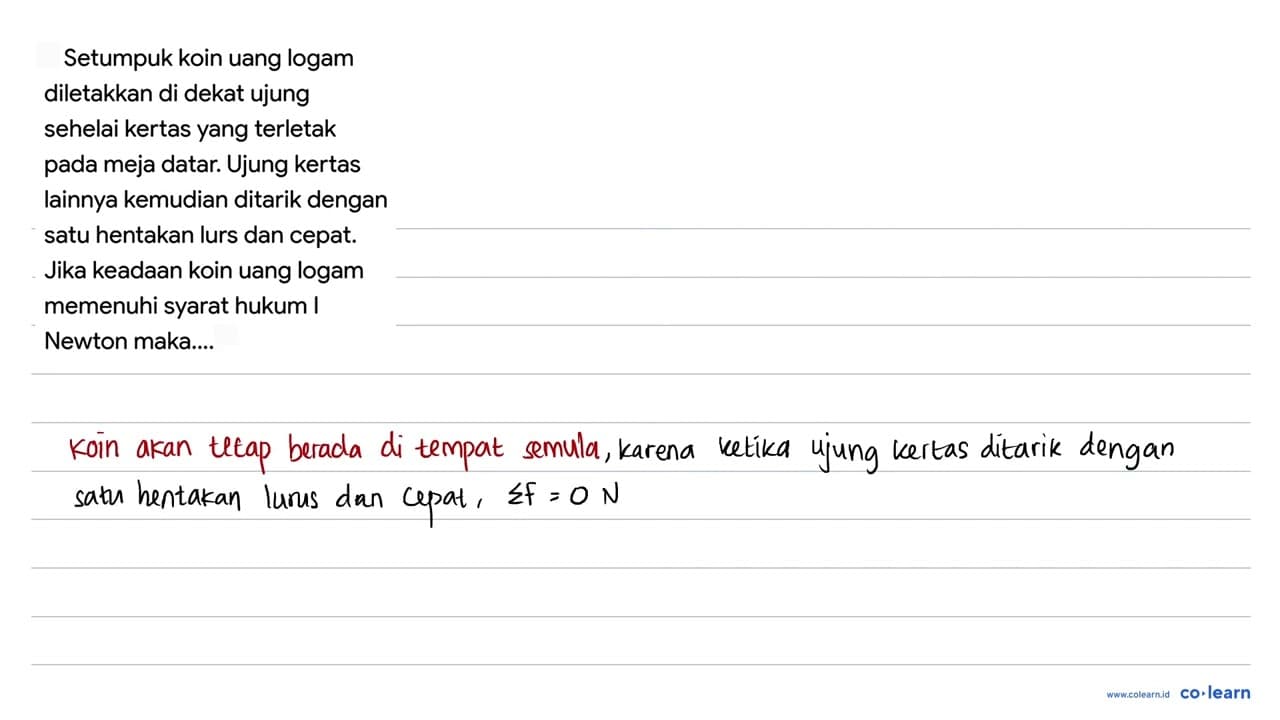 Setumpuk koin uang logam
diletakkan di dekat ujung
sehelai kertas yang terletak
pada meja datar. Ujung kertas
lainnya kemudian ditarik dengan
satu hentakan lurs dan cepat.
Jika keadaan koin uang logam
memenuhi syarat hukum I
Newton maka....
koin akan tetap berada di tempat semula, karena ketika ujung kertas ditarik dengan
satu hentakan lurus dan cepat, ΣF = 0 N
www.colearn.id co·learn